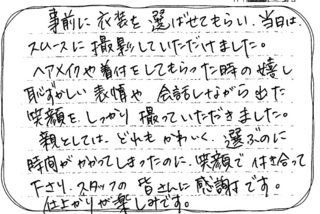 事前に衣装を選ばせてもらい、当日は、
スムースに撮影していただけました。
ヘアメイクや着付をしてもらった時の嬉し
恥ずかしい表情や会話しながら出た
笑顔をしっかり撮っていただきました。
親としては、どれもかわいく、選ぶのに
時間がかかってしまったのに、笑顔で付き合って
下さり、スタッフの皆さんに感謝です。
仕上がりが楽しみです。